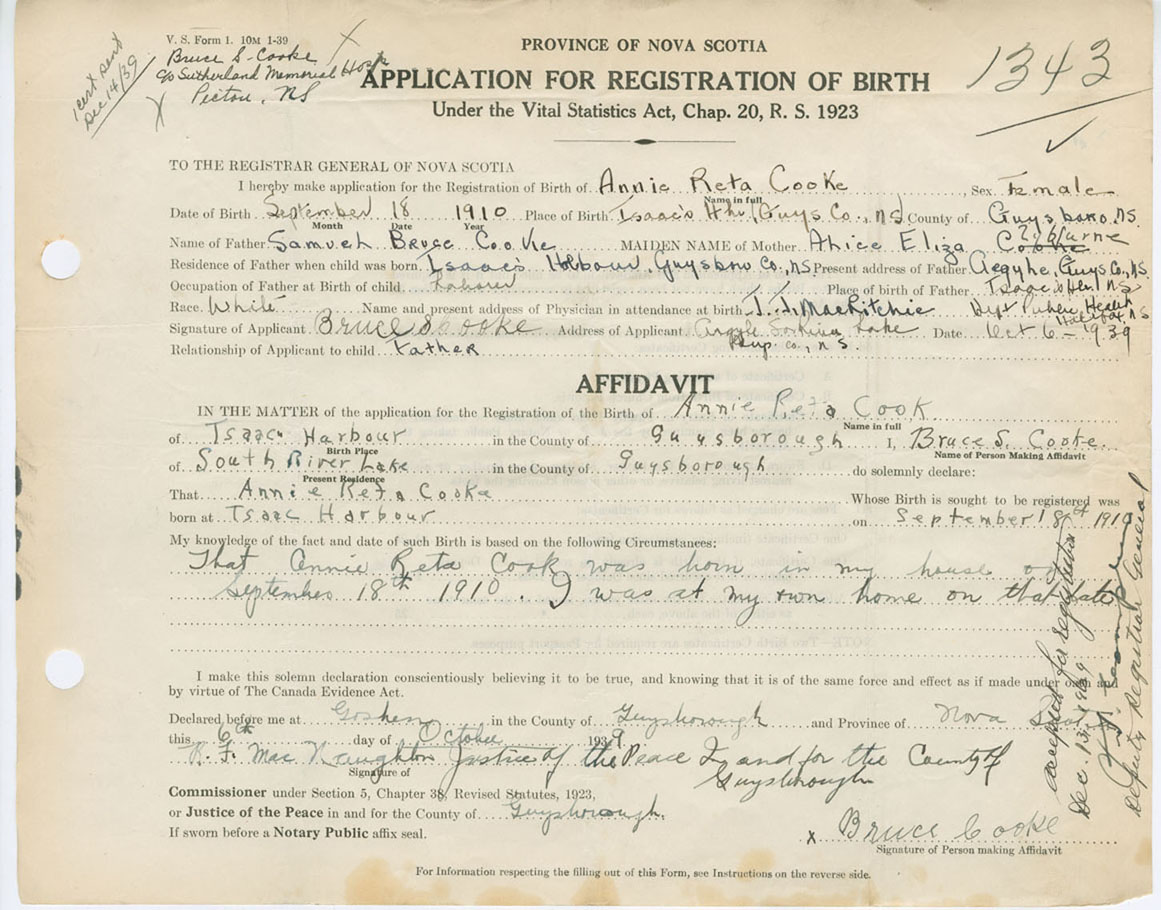 V. S. Form 1. 10M 1-39
Bruce S. Cooke
c/o Sutherland Memorial Hosp
Pictou, NS
1 cert sent
Dec 14/39
PROVINCE OF NOVA SCOTIA
1343
APPLICATION FOR REGISTRATION OF BIRTH
Under the Vital Statistics Act, Chap. 20, R. S. 1923
TO THE REGISTRAR GENERAL OF NOVA SCOTIA
I hereby make application for the Registration of Birth of Annie Reta Cooke, Sex Female
Name in full
Date of Birth September 18 1910 Place of Birth Isaac's Hbr, Guys Co., NS County of Guysboro, NS.
Month Date Year
Name of Father Samuel Bruce Cooke MAIDEN NAME of Mother Alice Eliza Cooke
Residence of Father when child was born Isaac's Harbour, Guysboro Co., NS Present address of Father Argyle, Guys Co., NS.
Occupation of Father at Birth of child Laborer Place of birth of Father Isaac's Hbr NS
Race White Name and present address of Physician in attendance at birth J. J. MacRitchie Dept Public Health Halifax NS
Signature of Applicant Bruce S Cooke Address of Applicant Argyle Lake Date Oct 6 - 1939
Guy. co., N S.
Relationship of Applicant to child Father
AFFIDAVIT
IN THE MATTER of the application for the Registration of the Birth of Annie Reta Cook
Name in full
of Isaac Harbour in the County of Guysborough I, Bruce S. Cooke.
Birth Place Name of Person Making Affidavit
of South River Lake in the County of Guysborough do solemnly declare:
Present Residence
That Annie Reta Cooke Whose Birth is sought to be registered was
born at Isaac Harbour on September 18th 1910
My knowledge of the fact and date of such Birth is based on the following Circumstances:
That Annie Reta Cook was born in my house on
September 18th 1910. I was at my own home on that date
I make this solemn declaration conscientiously believing it to be true, and knowing that it is of the same force and effect as if made under oath and
by virtue of The Canada Evidence Act.
Declared before me at Goshen in the County of Guysborough and Province of Nova Scotia
this 6th day of October 1939
R. F. MacNaughton Justice of the Peace In and for the County of
Guysborough
Signature of
Commissioner under Section 5, Chapter 38, Revised Statutes, 1923,
or Justice of the Peace in and for the County of Guysborough.
If sworn before a Notary Public affix seal.
x Bruce Cooke
Signature of Person making Affidavit
For Information respecting the filling out of this Form, see Instructions on the reverse side.
accepted for registration
Dec. 13, 1939
Deputy Registrar General